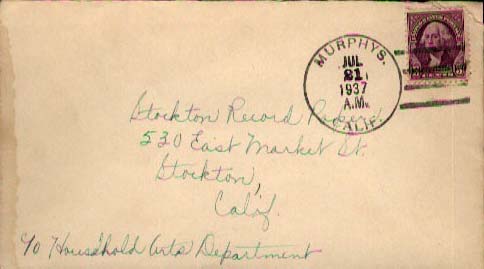 MURPHYS.
JUL
21
1937
A.M.
CALIF.
Stockton Record
530 East Market St.
Stockton,
Calif.
c/o Household Arts Department